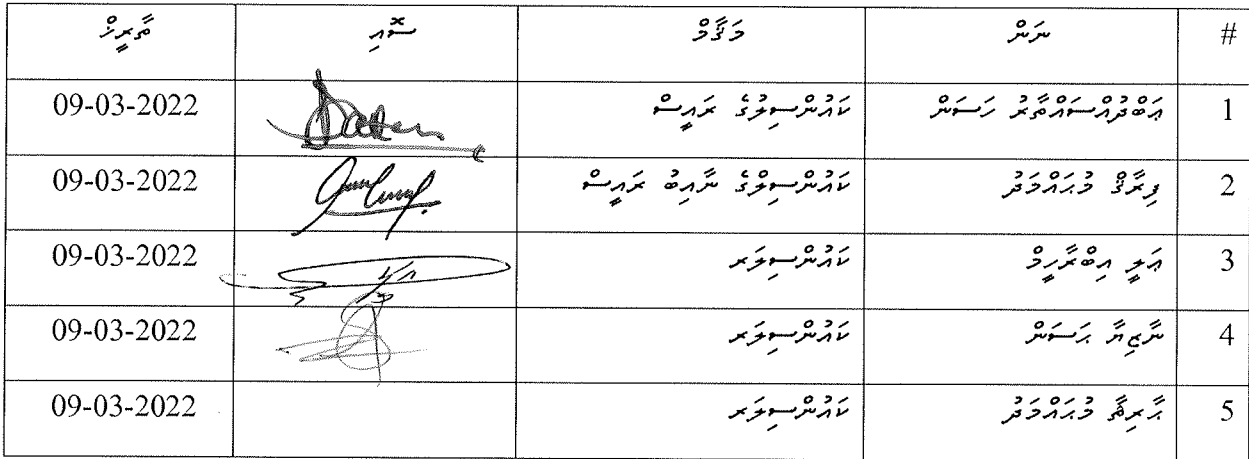 # ނަން މަޤާމް ސޮއި ތާރީޚް
1 ޢަބްދުއްސައްތާރު ހަސަން ކައުންސިލުގެ ރައީސް 09-03-2022
2 ފިރާޤް މުޙައްމަދު ކައުންސިލްގެ ނާއިބު ރައީސް 09-03-2022
3 ޢަލީ އިބްރާހީމް ކައުންސިލަރ 09-03-2022
4 ނާޒިޔާ ޙަސަން ކައުންސިލަރ 09-03-2022
5 ޙާރިޘާ މުޙައްމަދު ކައުންސިލަރ 09-03-2022